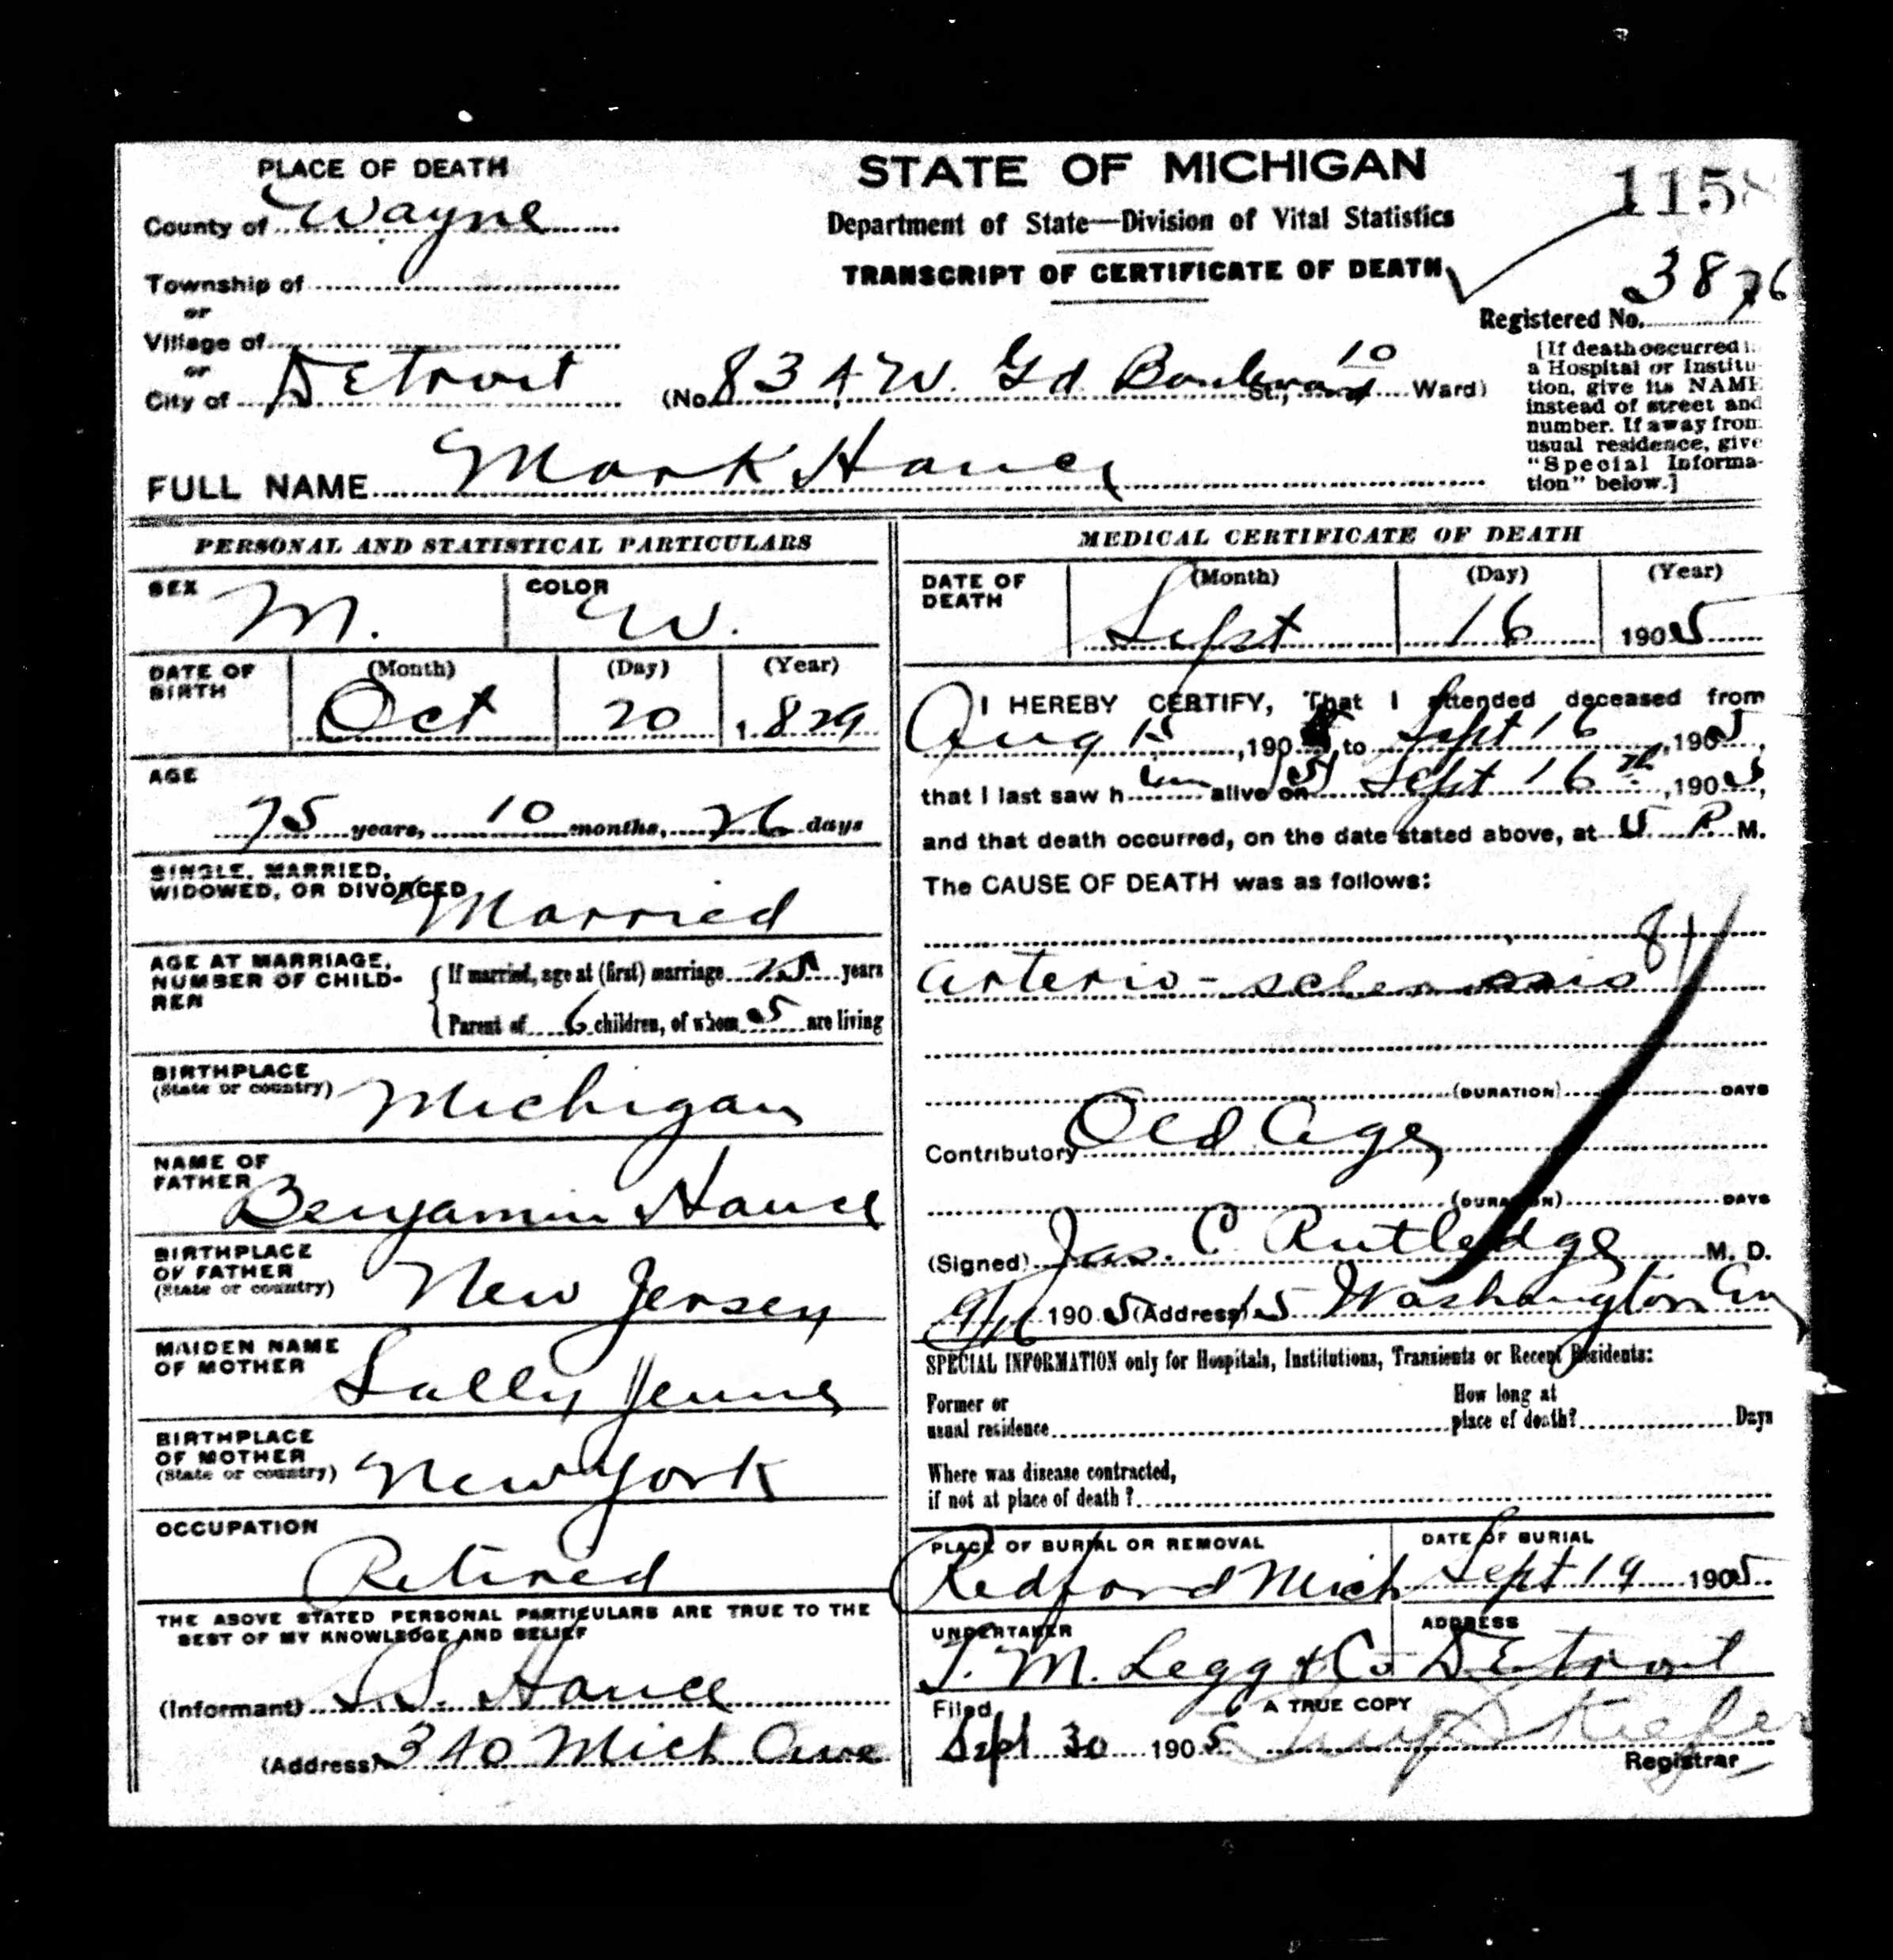 PLACE OF DEATH
County of Wayne
Township of
or
Village of
or
City of Detroit
STATE OF MICHIGAN
Department of State—Division of Vital Statistics
TRANSCRIPT OF CERTIFICATE OF DEATH
115
Registered No. 3876
(No. 834 W. Gd Boulevard St., 10 Ward)
[If death occurred in
a Hospital or Institu-
tion, give its NAME
instead of street and
number. If away from
usual residence, give
"Special Informa-
tion" below.]
FULL NAME Mark Hance
PERSONAL AND STATISTICAL PARTICULARS
SEX M. COLOR W.
DATE OF BIRTH (Month) Oct (Day) 20 (Year) 1829
AGE
75 years, 10 months, 26 days
SINGLE, MARRIED,
WIDOWED, OR DIVORCED Married
AGE AT MARRIAGE,
NUMBER OF CHILD-
REN
If married, age at (first) marriage 25 years
Parent of 6 children, of whom 5 are living
BIRTHPLACE
(State or country) Michigan
NAME OF
FATHER Benjamin Hance
BIRTHPLACE
OF FATHER
(State or country) New Jersey
MAIDEN NAME
OF MOTHER Sally
BIRTHPLACE
OF MOTHER
(State or country) New York
OCCUPATION
Retired
THE ABOVE STATED PERSONAL PARTICULARS ARE TRUE TO THE
BEST OF MY KNOWLEDGE AND BELIEF
(Informant) S.S. Hance
(Address) 340 Mich Ave
MEDICAL CERTIFICATE OF DEATH
DATE OF DEATH (Month) Sept (Day) 16 (Year) 1905
I HEREBY CERTIFY, That I attended deceased from
Aug 15, 190 , to Sept 16, 1905,
that I last saw him alive on Sept 16th, 1905,
and that death occurred, on the date stated above, at 5 P M.
The CAUSE OF DEATH was as follows:
81
arterio-sclerosis
(DURATION) DAYS
Contributory Old Age
(DURATION) DAYS
(Signed) Jas. C. Rutledge M. D.
9/16 1905 (Address) 15 Washington Av
SPECIAL INFORMATION only for Hospitals, Institutions, Transients or Recent Residents:
Former or
usual residence
How long at
place of death? Days
Where was disease contracted,
if not at place of death?
PLACE OF BURIAL OR REMOVAL
Redford Mich
DATE OF BURIAL
Sept 19 1905
UNDERTAKER
T. M. Legg & Co
ADDRESS
Detroit
Filed
Sept 30 1905
A TRUE COPY
Kiefer
Registrar